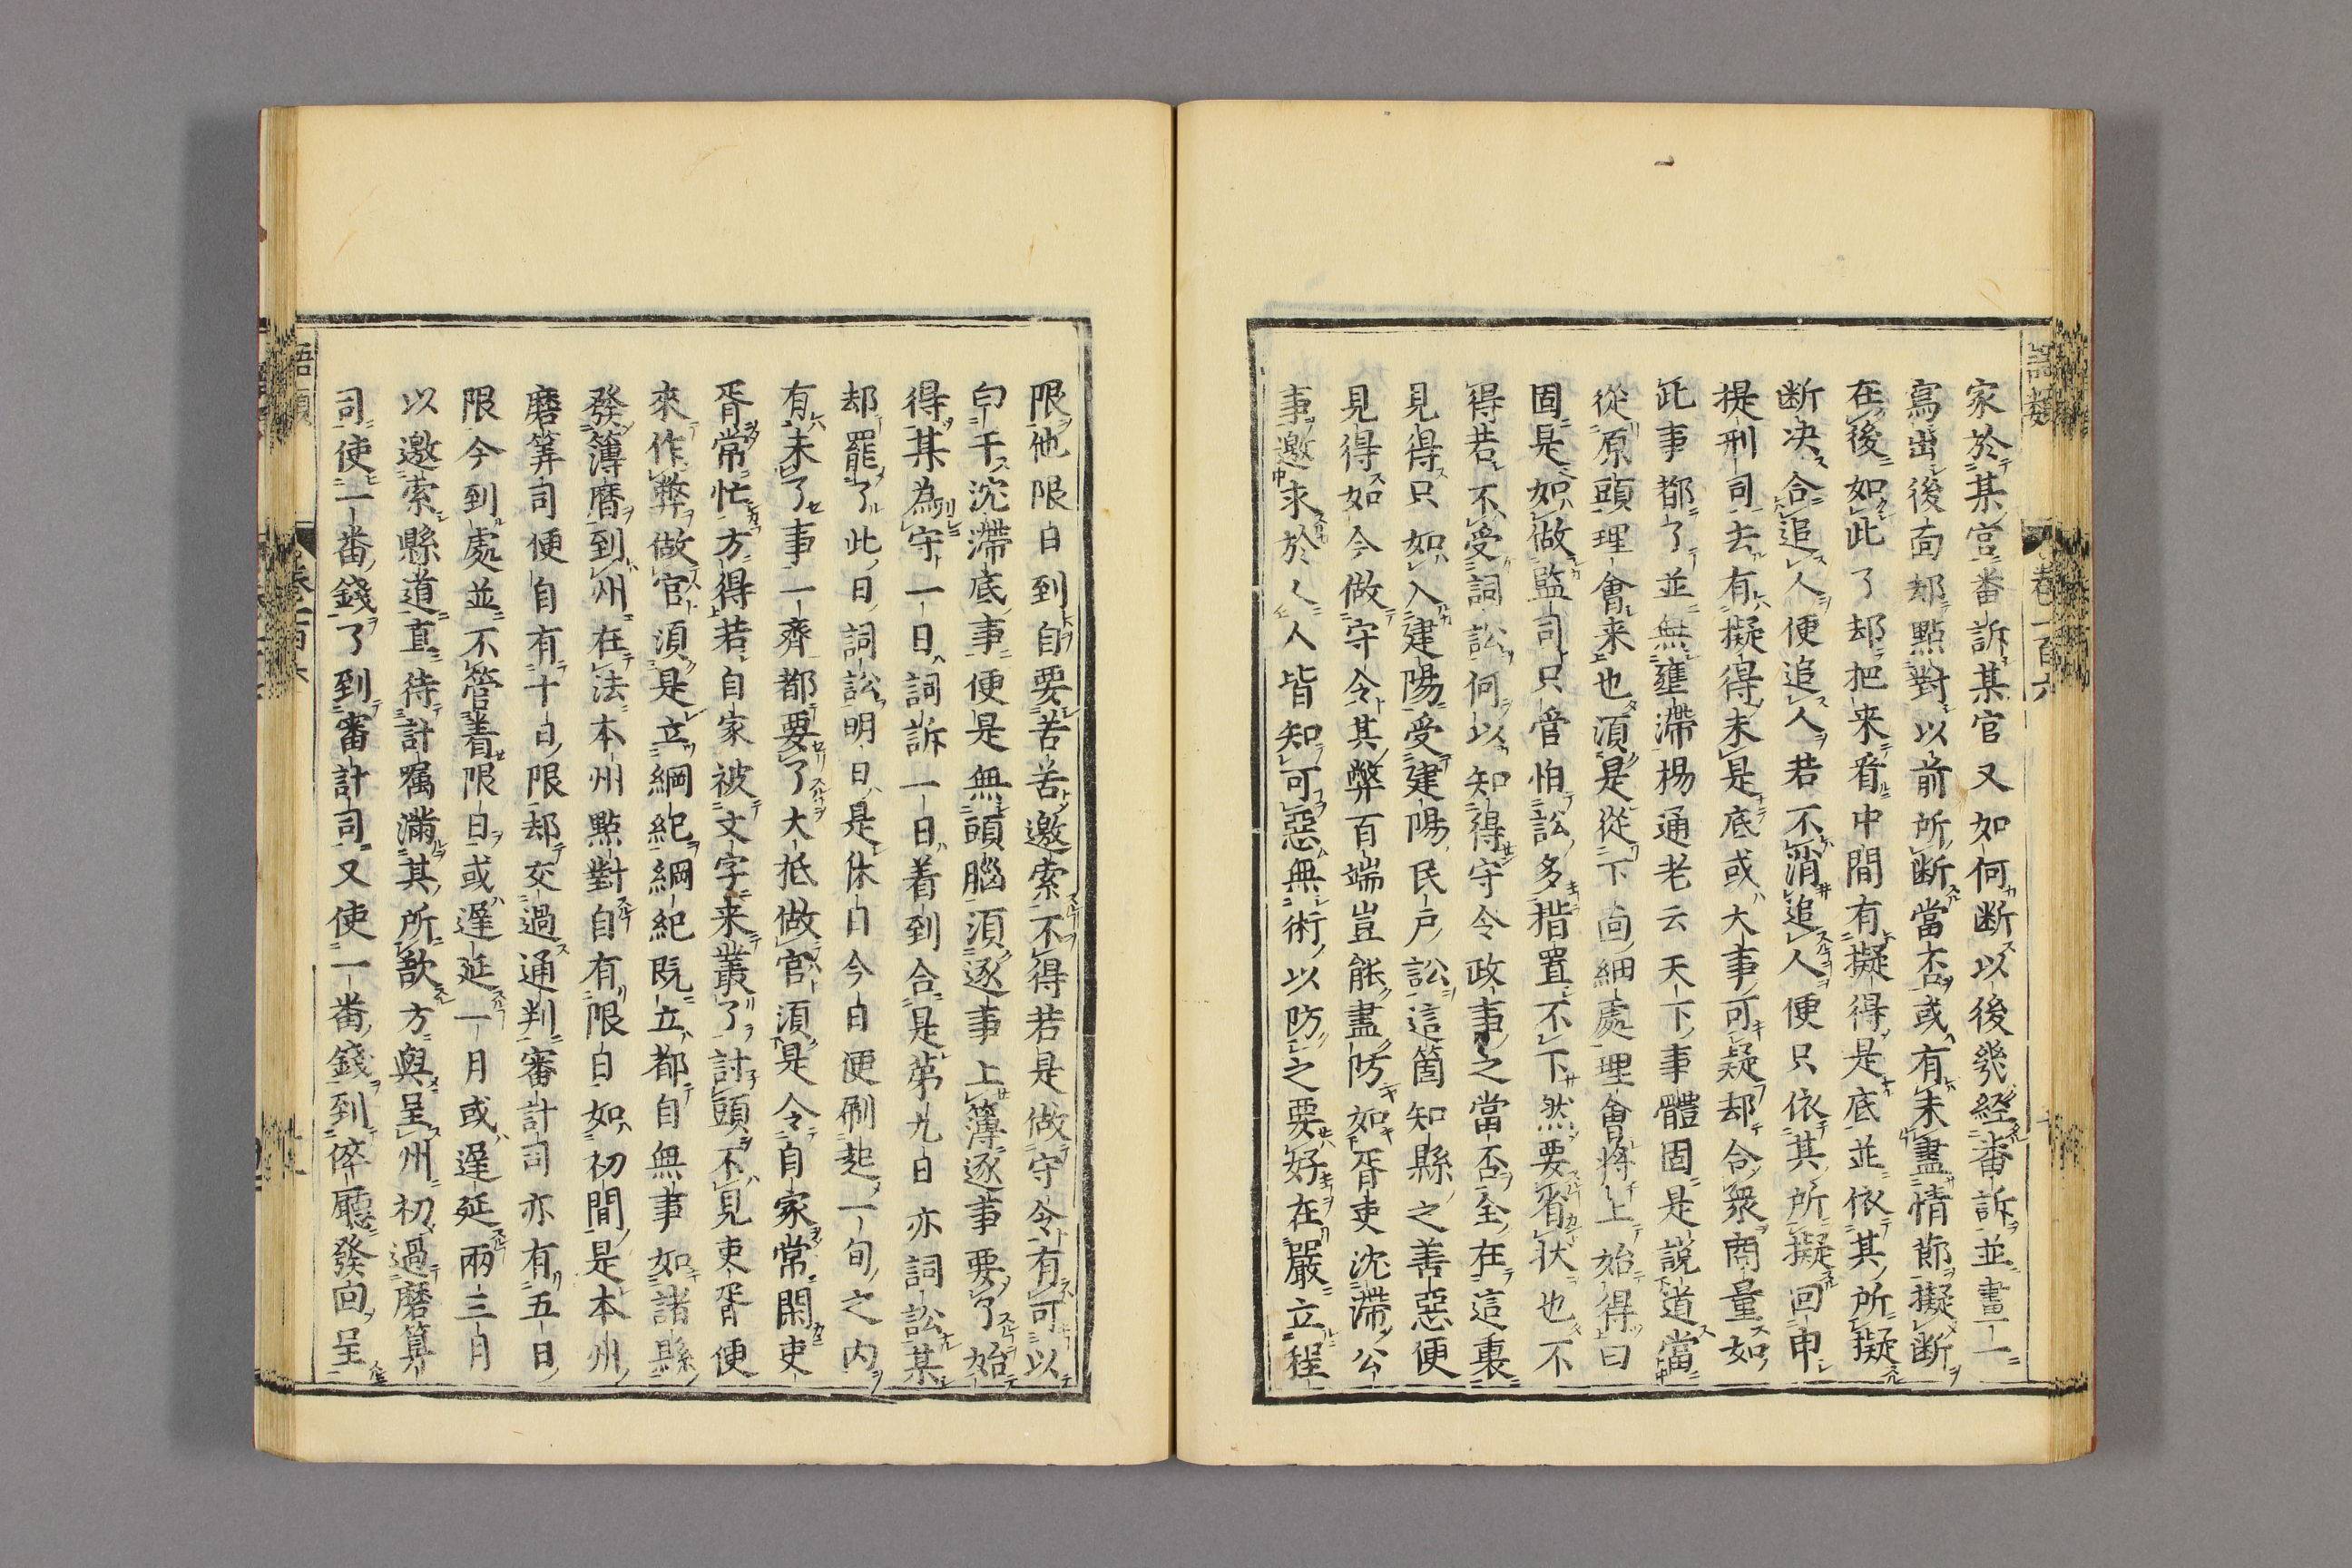 語類 卷一百六
家於某官番訴某官又如何断以後幾經番訴並畫一
寫出後面却點對以前所断當否或有未盡情節擬断
在後如此了却把来看中間有擬得是底並依其所擬
断决合追人便追人若不消追人便只依其所擬回申
提刑司去有擬得未是底或大事可疑却合衆商量如
此事都了並無壅滯楊通老云天下事體固是說道當
從原頭理會来也須是從下面細處理會將上始得曰
固是如做監司只管怕訟多措置不下然要省狀也不
得若不受詞訟何以知得守令政事之當否全在這裏
見得只如入建陽受建陽民戶訟這箇知縣之善惡便
見得如今做守令其弊百端豈能盡防如胥吏沈滯公
事邀求於人人皆知可惡無術以防之要好在嚴立程
限他限日到自要苦苦邀索不得若是做守令有可以
白干沈滯底事便是無頭腦須逐事上簿逐事要了始
得某為守一日詞訴一日着到合是第九日亦詞訟某
却罷了此日詞訟明日是休日今日便刷起一旬之内
有未了事一齊都要了大抵做官須是令自家常閑吏
胥常忙方得若自家被文字来叢了討頭不見吏胥便
來作弊做官須是立綱紀綱紀既立都自無事如諸縣
發簿曆到州在法本州點對自有限日如初間是本州
磨算司便自有十日限却交過通判審計司亦有五日
限今到處並不管着限日或遲延一月或遲延兩三月
以邀索縣道直待計囑滿其所欲方與呈州初過磨算
司使一番錢了到審計司又使一番錢到倅廳發回呈
語類